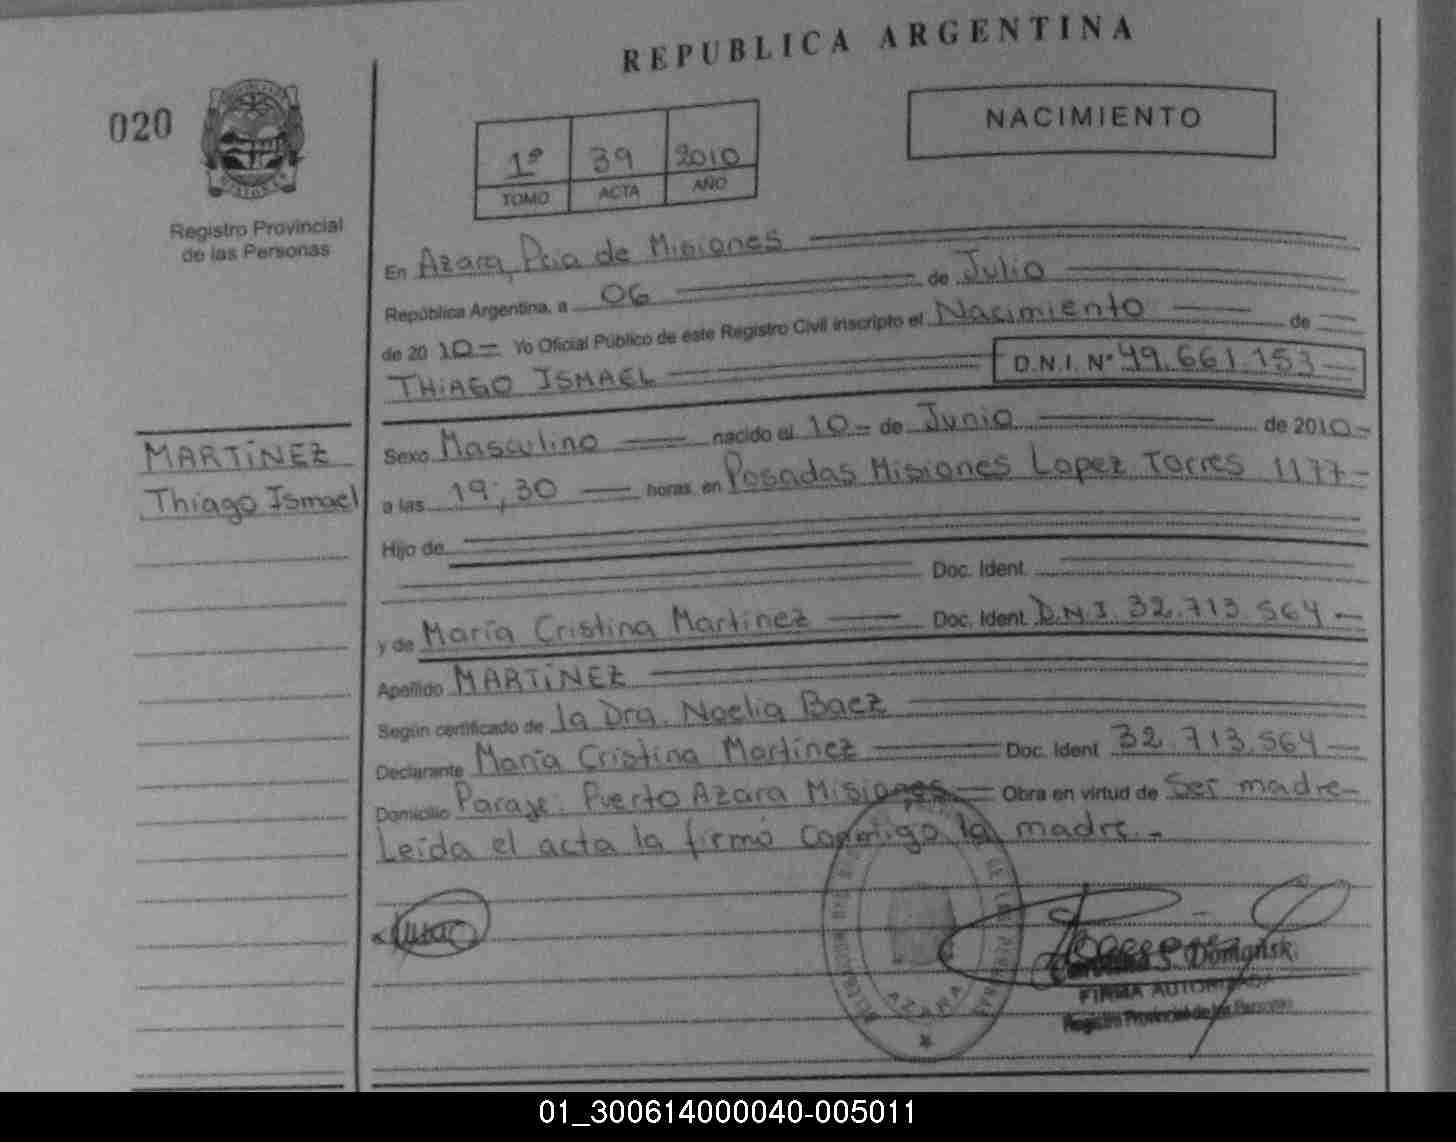 REPUBLICA ARGENTINA
020
NACIMIENTO
1º 39 2010
TOMO ACTA AÑO
Registro Provincial
de las Personas
En Azara, Pcia de Misiones
República Argentina, a 06 de Julio
de 2010 Yo Oficial Público de este Registro Civil inscripto el Nacimiento de
THIAGO ISMAEL D.N.I. Nº 49.661.153
MARTÍNEZ
Thiago Ismael
Sexo Masculino nacido el 10 de Junio de 2010
a las 19;30 horas en Posadas Misiones Lopez Torres 1177
Hijo de
Doc. Ident.
y de María Cristina Martínez Doc. Ident. D.N.I. 32.713.564
Apellido MARTÍNEZ
Según certificado de la Dra. Noelia Baez
Declarante María Cristina Martínez Doc. Ident 32.713.564
Domicilio Paraje: Puerto Azara Misiones Obra en virtud de Ser madre
Leída el acta la firmó conmigo la madre.-
AZARA
Domanski
FIRMA AUTORIZADA
Registro Provincial de las Personas
01_300614000040-005011